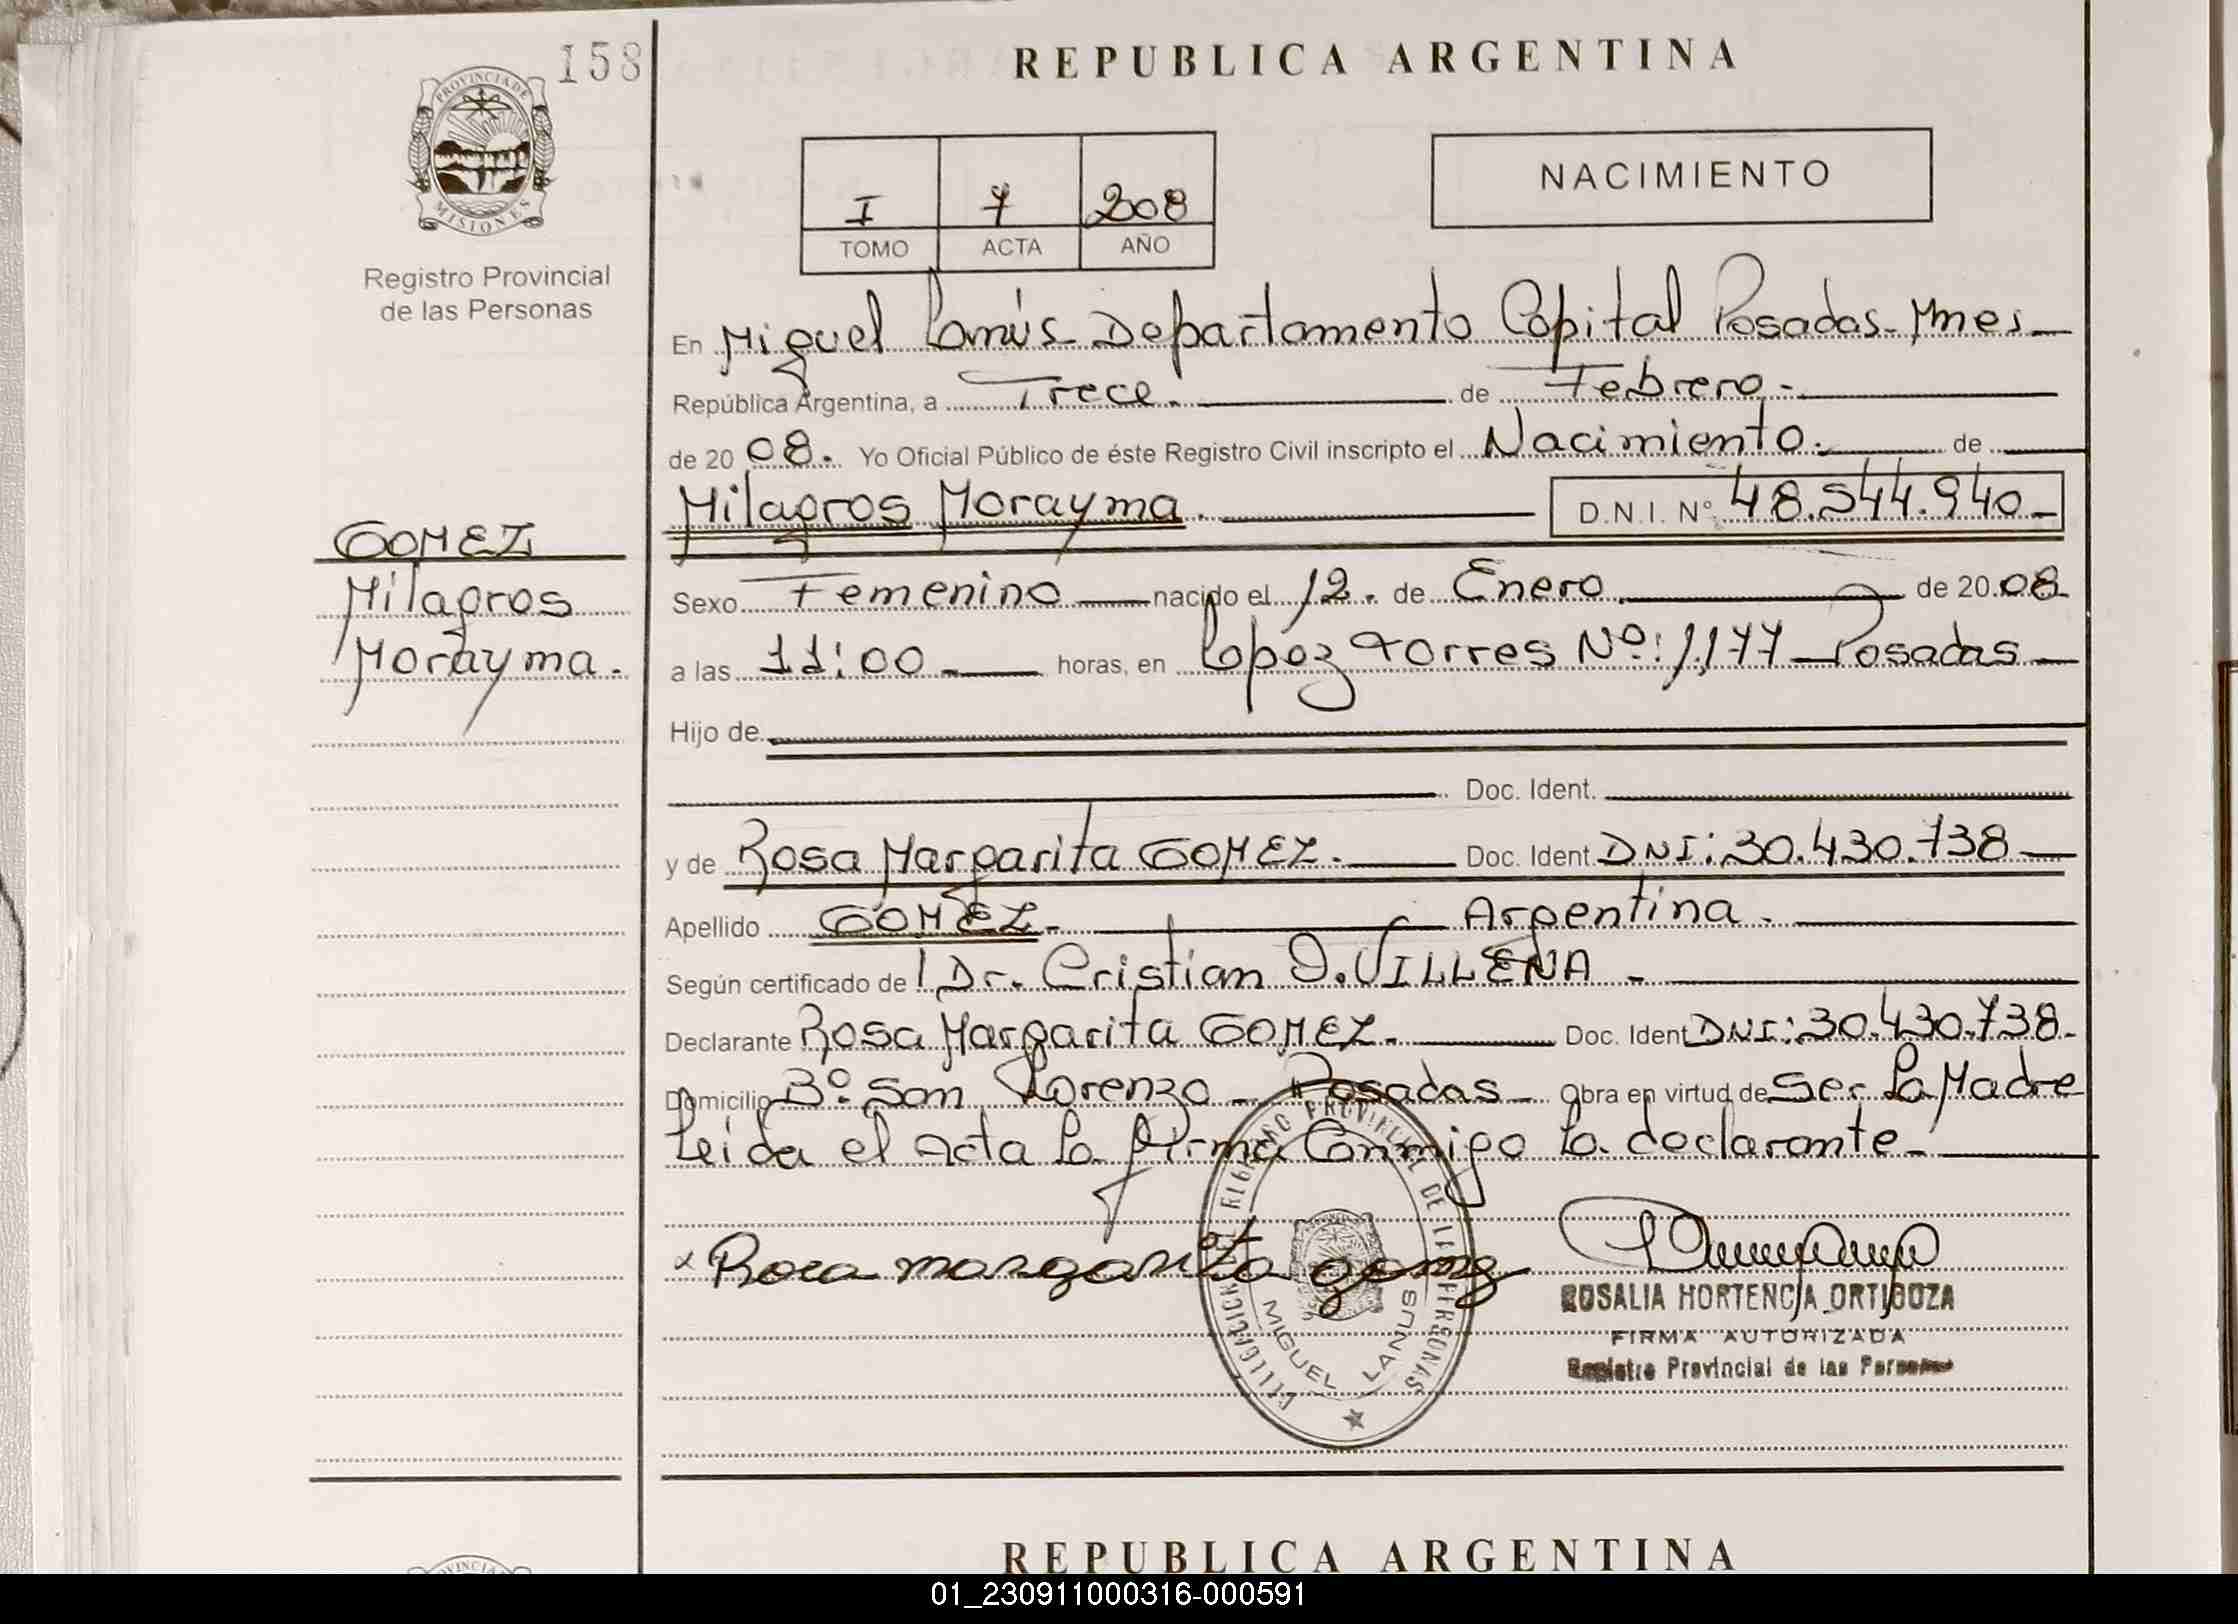 158
REPUBLICA ARGENTINA
PROVINCIA DE
MISIONES
Registro Provincial
de las Personas
I 7 208
TOMO ACTA AÑO
NACIMIENTO
En Miguel Lanús Departamento Capital Posadas - Mnes
República Argentina, a Trece. de Febrero.
de 20 08. Yo Oficial Público de éste Registro Civil inscripto el Nacimiento. de
Milagros Morayma. D.N.I. Nº 48.544.940
GOMEZ
Milagros
Morayma.
Sexo Femenino nacido el 12. de Enero de 20 08
a las 11:00 horas, en Lopez Torres Nº: 1177 - Posadas
Hijo de
Doc. Ident.
y de Rosa Margarita GOMEZ. Doc. Ident. DNI: 30.430.738
Apellido GOMEZ. Argentina.
Según certificado de Dr. Cristian D. VILLENA
Declarante Rosa Margarita GOMEZ. Doc. Ident DNI: 30.430.738.
Domicilio Bº. San Lorenzo - Posadas - Obra en virtud de Ser La Madre
Leida el Acta La firma Conmigo La declarante
x Rosa margarita gomez
DELEGACION REGISTRO PROVINCIAL DE LAS PERSONAS
MIGUEL LANUS
ROSALIA HORTENCIA ORTIGOZA
FIRMA AUTORIZADA
Registro Provincial de las Personas
REPUBLICA ARGENTINA
01_230911000316-000591